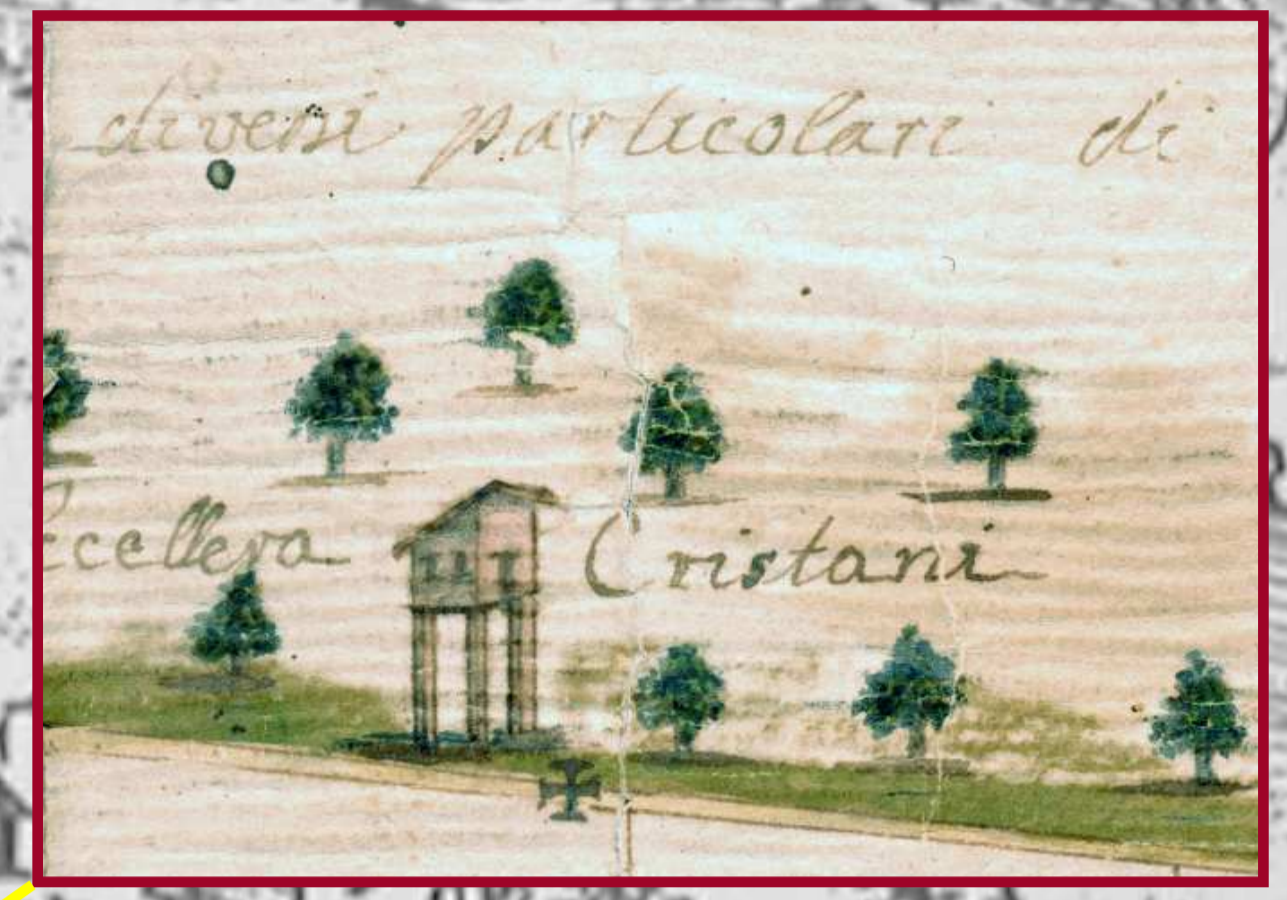 diversi particolari di
ccellera Cristani